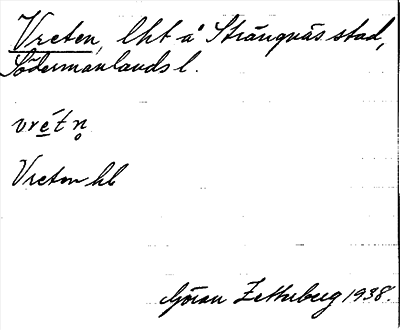 Vreten, lht å Strängnäs stad,
Södermanlands l.
vrétn̥
Vreten hb
Göran Zetterberg 1938.